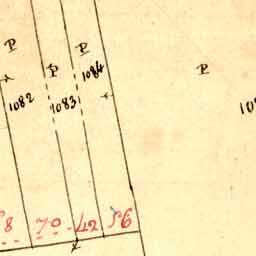 P
P
P
P
1082
1083
1084
70
42
56